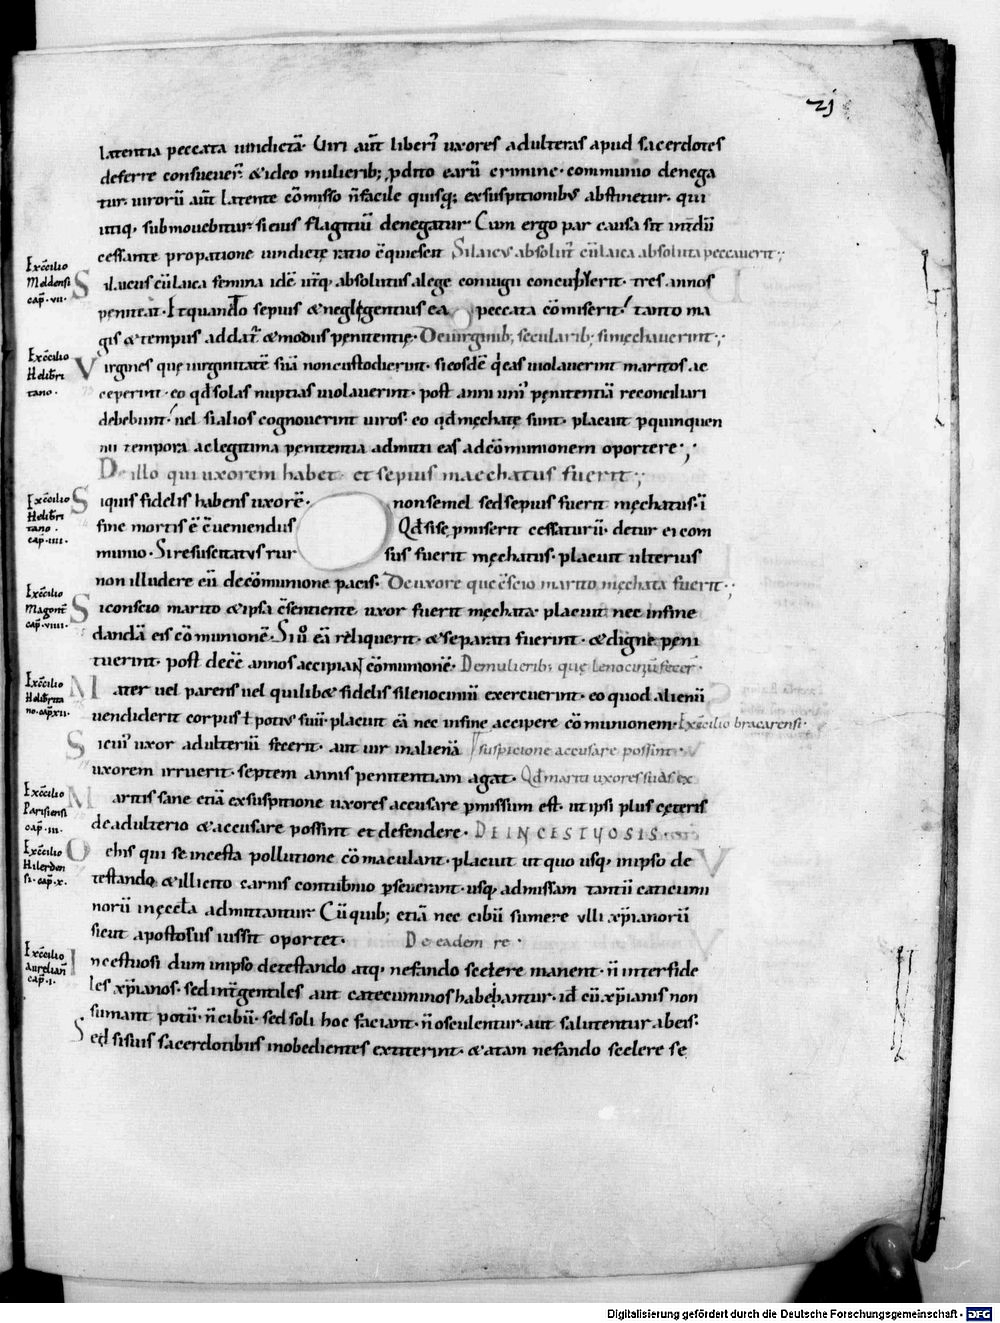 21
latentia peccata uindictā· Uiri aut̄ liberi᷒ uxores adulteras apud sacerdotes
deferre consueuer̄ &ideo mulierib; ꝓdito earū crimine· communio denega
tur· uirorū aut̄ latente cōmisso n̄facile quisq; exsuspitionibus abstinetur· qui
utiq, submouebitur· sieius flagitiū denegatur· Cum ergo par causa sit int̄dū
cessante propatione uindictę ratio cq̄uiescit Silaicus absolut᷒ cūlaica absoluta peccauerit;
Excc̄ilio
Meldensi
cap̄·vii·
Silaicus cūlaica femina idē utq̄ absolutus alege coniugii concubuerit· tres annos
peniteat· Et quando sepius & neglegentius ea peccata cōmiserit! tanto ma
gis & tempus addat᷒ & modus penitentię· Deuirginib; secularib; simęchauerint;
Excc̄ilio
Helib̄ri
tano·
Virgines quę uirginitatē suā noncustodierint· sieosdē q̄eas uiolauerint maritos ac
ceperint· eo qd̄solas nuptias uiolauerint· post anni uni᷒ penitentiā reconciliari
debebunt· uel sialios cognouerint uiros· eo qd̄męchatę sunt· placuit ꝑquinquen
nii tempora aclegitima penitentia admitti eas adcōmunionem oportere·;
De illo qui uxorem habet· et sepius maechatus fuerit;
Excc̄ilio
Helib̄ri
tano·
cap̄·iiii·
Siquis fidelis habens uxorē· nonsemel sedsepius fuerit męchatus· ī
fine mortis ē cōueniendus Qd̄sisę ꝓmiserit cessaturū· detur ei com
munio· Siresuscitatus rur sus fuerit męchatus· placuit ulterius
non illudere eū decōmunione pacis· De uxore que cōscio marito męchata fuerit;
Excc̄ilio
Magont̄
cap̄·viiii·
Siconscio marito &ipsa cōsentiente uxor fuerit męchata· placuit nec infine
dandā eis cōmunionē· Siu᷒ eā reliquerit· &separati fuerint· &digne peni
tuerint· post decē annos accipiant cōmunionē· Demulierib; quę lenociniū fecer̄·
Excc̄ilio
Helib̄rita
no· cap̄·xii·
Mater uel parens uel quilib& fidelis silenociniū exercuerint· eo quod alienū
uendiderit corpus ł potius suū· placuit eā nec infine accipere cōmunionem· Excc̄ilio bracarensi·
Sicui᷒ uxor adulteriū fecerit· aut uir inalienā suspicione accusare possint·
uxorem irruerit· septem annis penitentiam agat· Qd̄mariti uxores suas ex
Excc̄ilio
Parisiensi
cap̄·iii·
Maritis sane etiā exsuspitione uxores accusare ꝑmissum est· ut ipsi plus cęteris
deadulterio & accusare possint et defendere· DE INCESTUOSIS·
Excc̄ilio
Hilerden
si· cap̄·x·
O ehis qui se incesta pollutione cōmaculant· placuit ut quo usq; inipso de
testando &illicito carnis contub̄nio ꝑseuerant· usq; admissam tantū caticumi
norū inęcctā admittantur· Cūquib; etiā nec cibū sumere ulli xp̄ianorū
sicut apostolus iussit oportet· De eadem re·
Excc̄ilio
Aurelian̄
cap̄·i·
Incestuosi dum inipso detestando atq; nefando scelere manent· n̄ interfide
les xp̄ianos· sed int̄gentiles aut catecuminos habeantur· id̄ cū xp̄ianis non
sumant potū· n̄cibū· sed soli hoc faciant· n̄osculentur· aut salutentur abeis·
Sed sisuis sacerdotibus inobedientes extiterint· & atam nefando scelere se
Digitalisierung gefördert durch die Deutsche Forschungsgemeinschaft - DFG